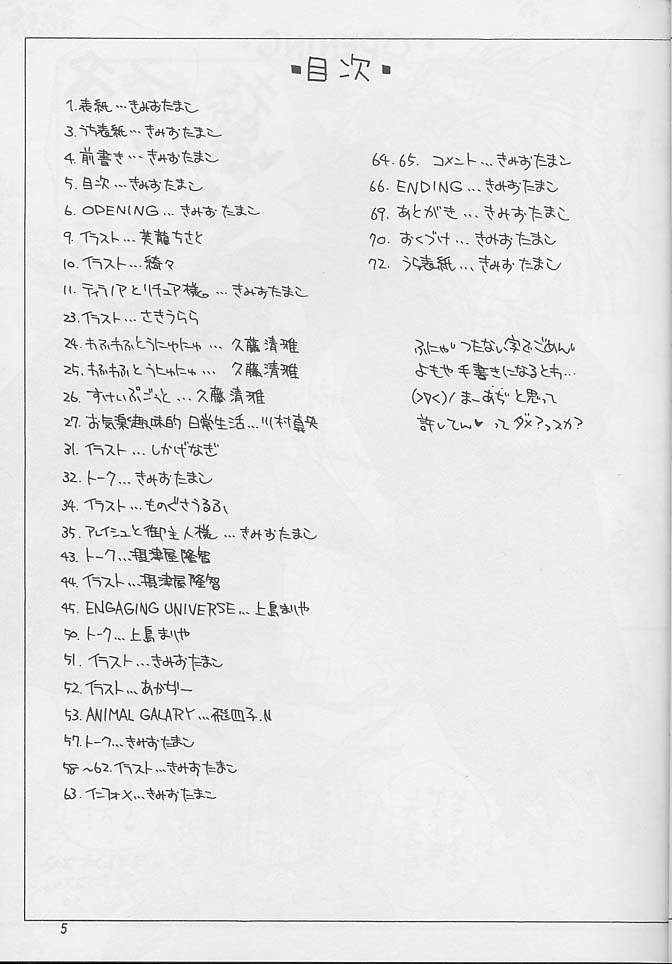 ▪目次▪
1. 表紙…きみおたまこ
3. うち表紙…きみおたまこ
4. 前書き…きみおたまこ
5. 目次…きみおたまこ
6. OPENING…きみおたまこ
9. イラスト…芙龍ちさと
10. イラスト…綺々
11. ティラノアとリチュア様。…きみおたまこ
23. イラスト…さきうらら
24. わふわふとうにゅにゅ…久藤清雅
25. わふわふとうにゅにゅ…久藤清雅
26. すけいぷごっと…久藤清雅
27. お気楽趣味的日常生活…川村真央
31. イラスト…しかげなぎ
32. トーク…きみおたまこ
34. イラスト…ものぐさうるふ
35. アレイシュと御主人様…きみおたまこ
43. トーク…摂津屋隆智
44. イラスト…摂津屋隆智
45. ENGAGING UNIVERSE…上島まりや
50. トーク…上島まりや
51. イラスト…きみおたまこ
52. イラスト…あかぢー
53. ANIMAL GALARY…飛四子.N
57. トーク…きみおたまこ
58~62. イラスト…きみおたまこ
63. インフォメ…きみおたまこ
64.65. コメント…きみおたまこ
66. ENDING…きみおたまこ
69. あとがき…きみおたまこ
70. おくづけ…きみおたまこ
72. うら表紙…きみおたまこ
ふにゃ〃つたない字でごめん〃
よもや手書きになるとわ…
(>Д<)/ まーあぢと思って
許してん♥ってダメ?っスか?
5